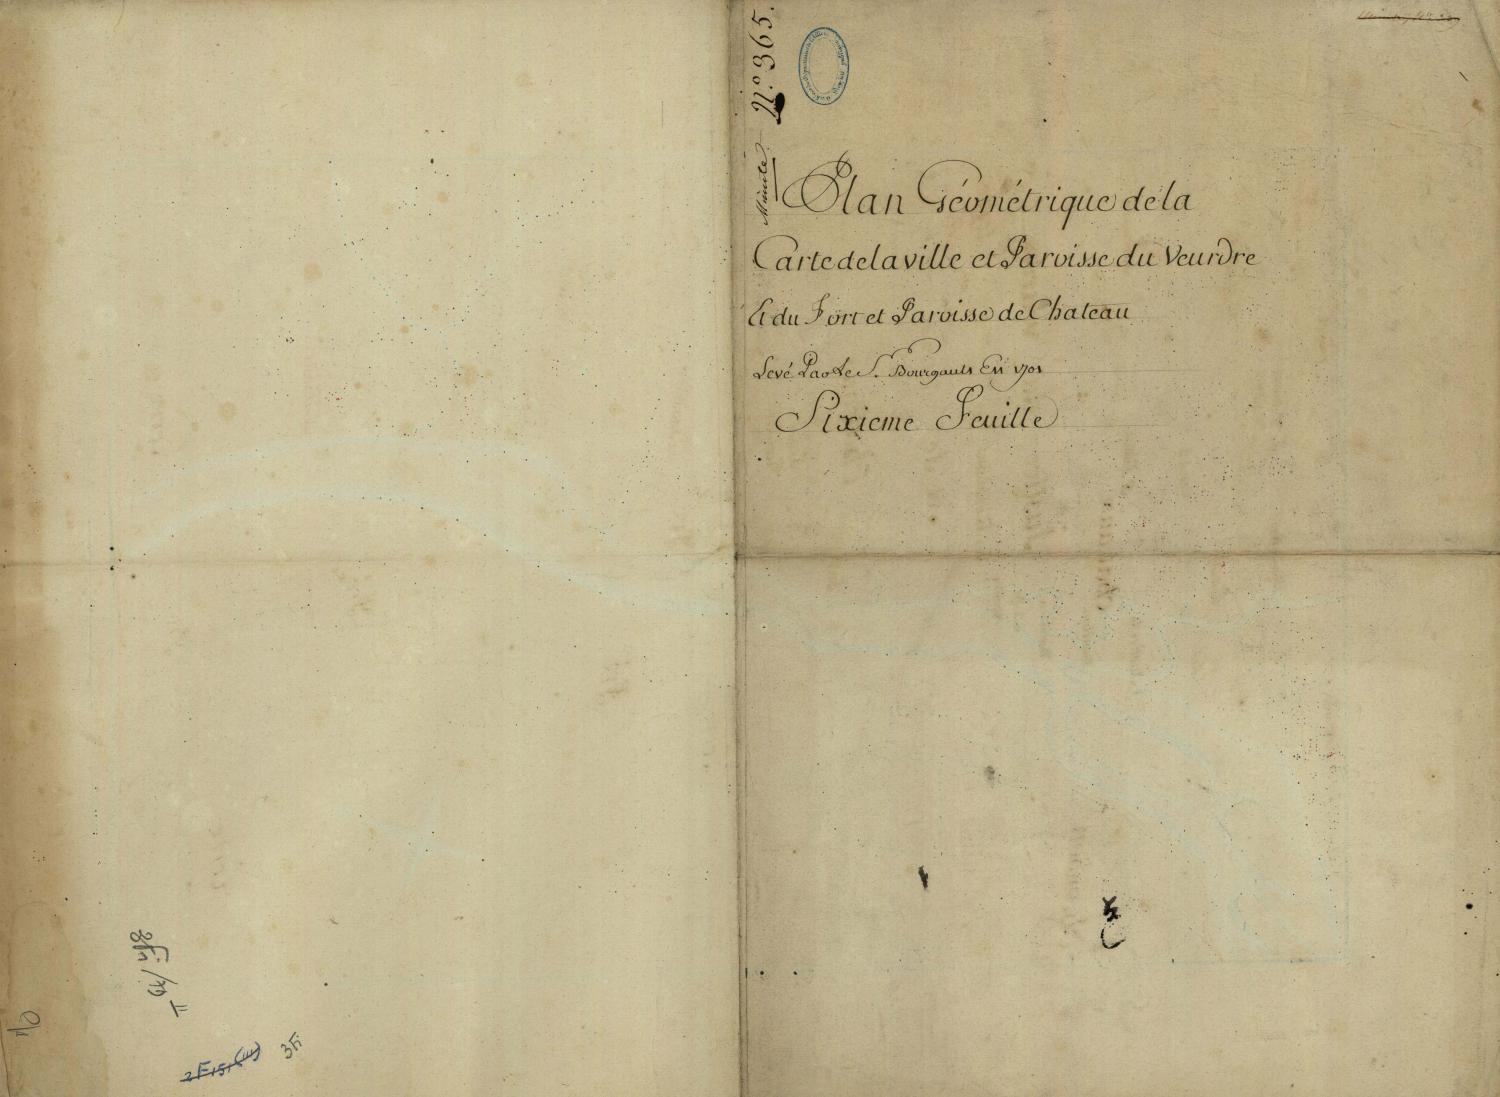 N.° 365.
Minute
Plan Géométrique de la
Carte de la ville et Paroisse du Veurdre
Et du Port et Paroisse de Chateau
Levé Par Le S. Bourgault En 1701
Sixieme Feuille
2 Fi 51 (III)
3 Fi